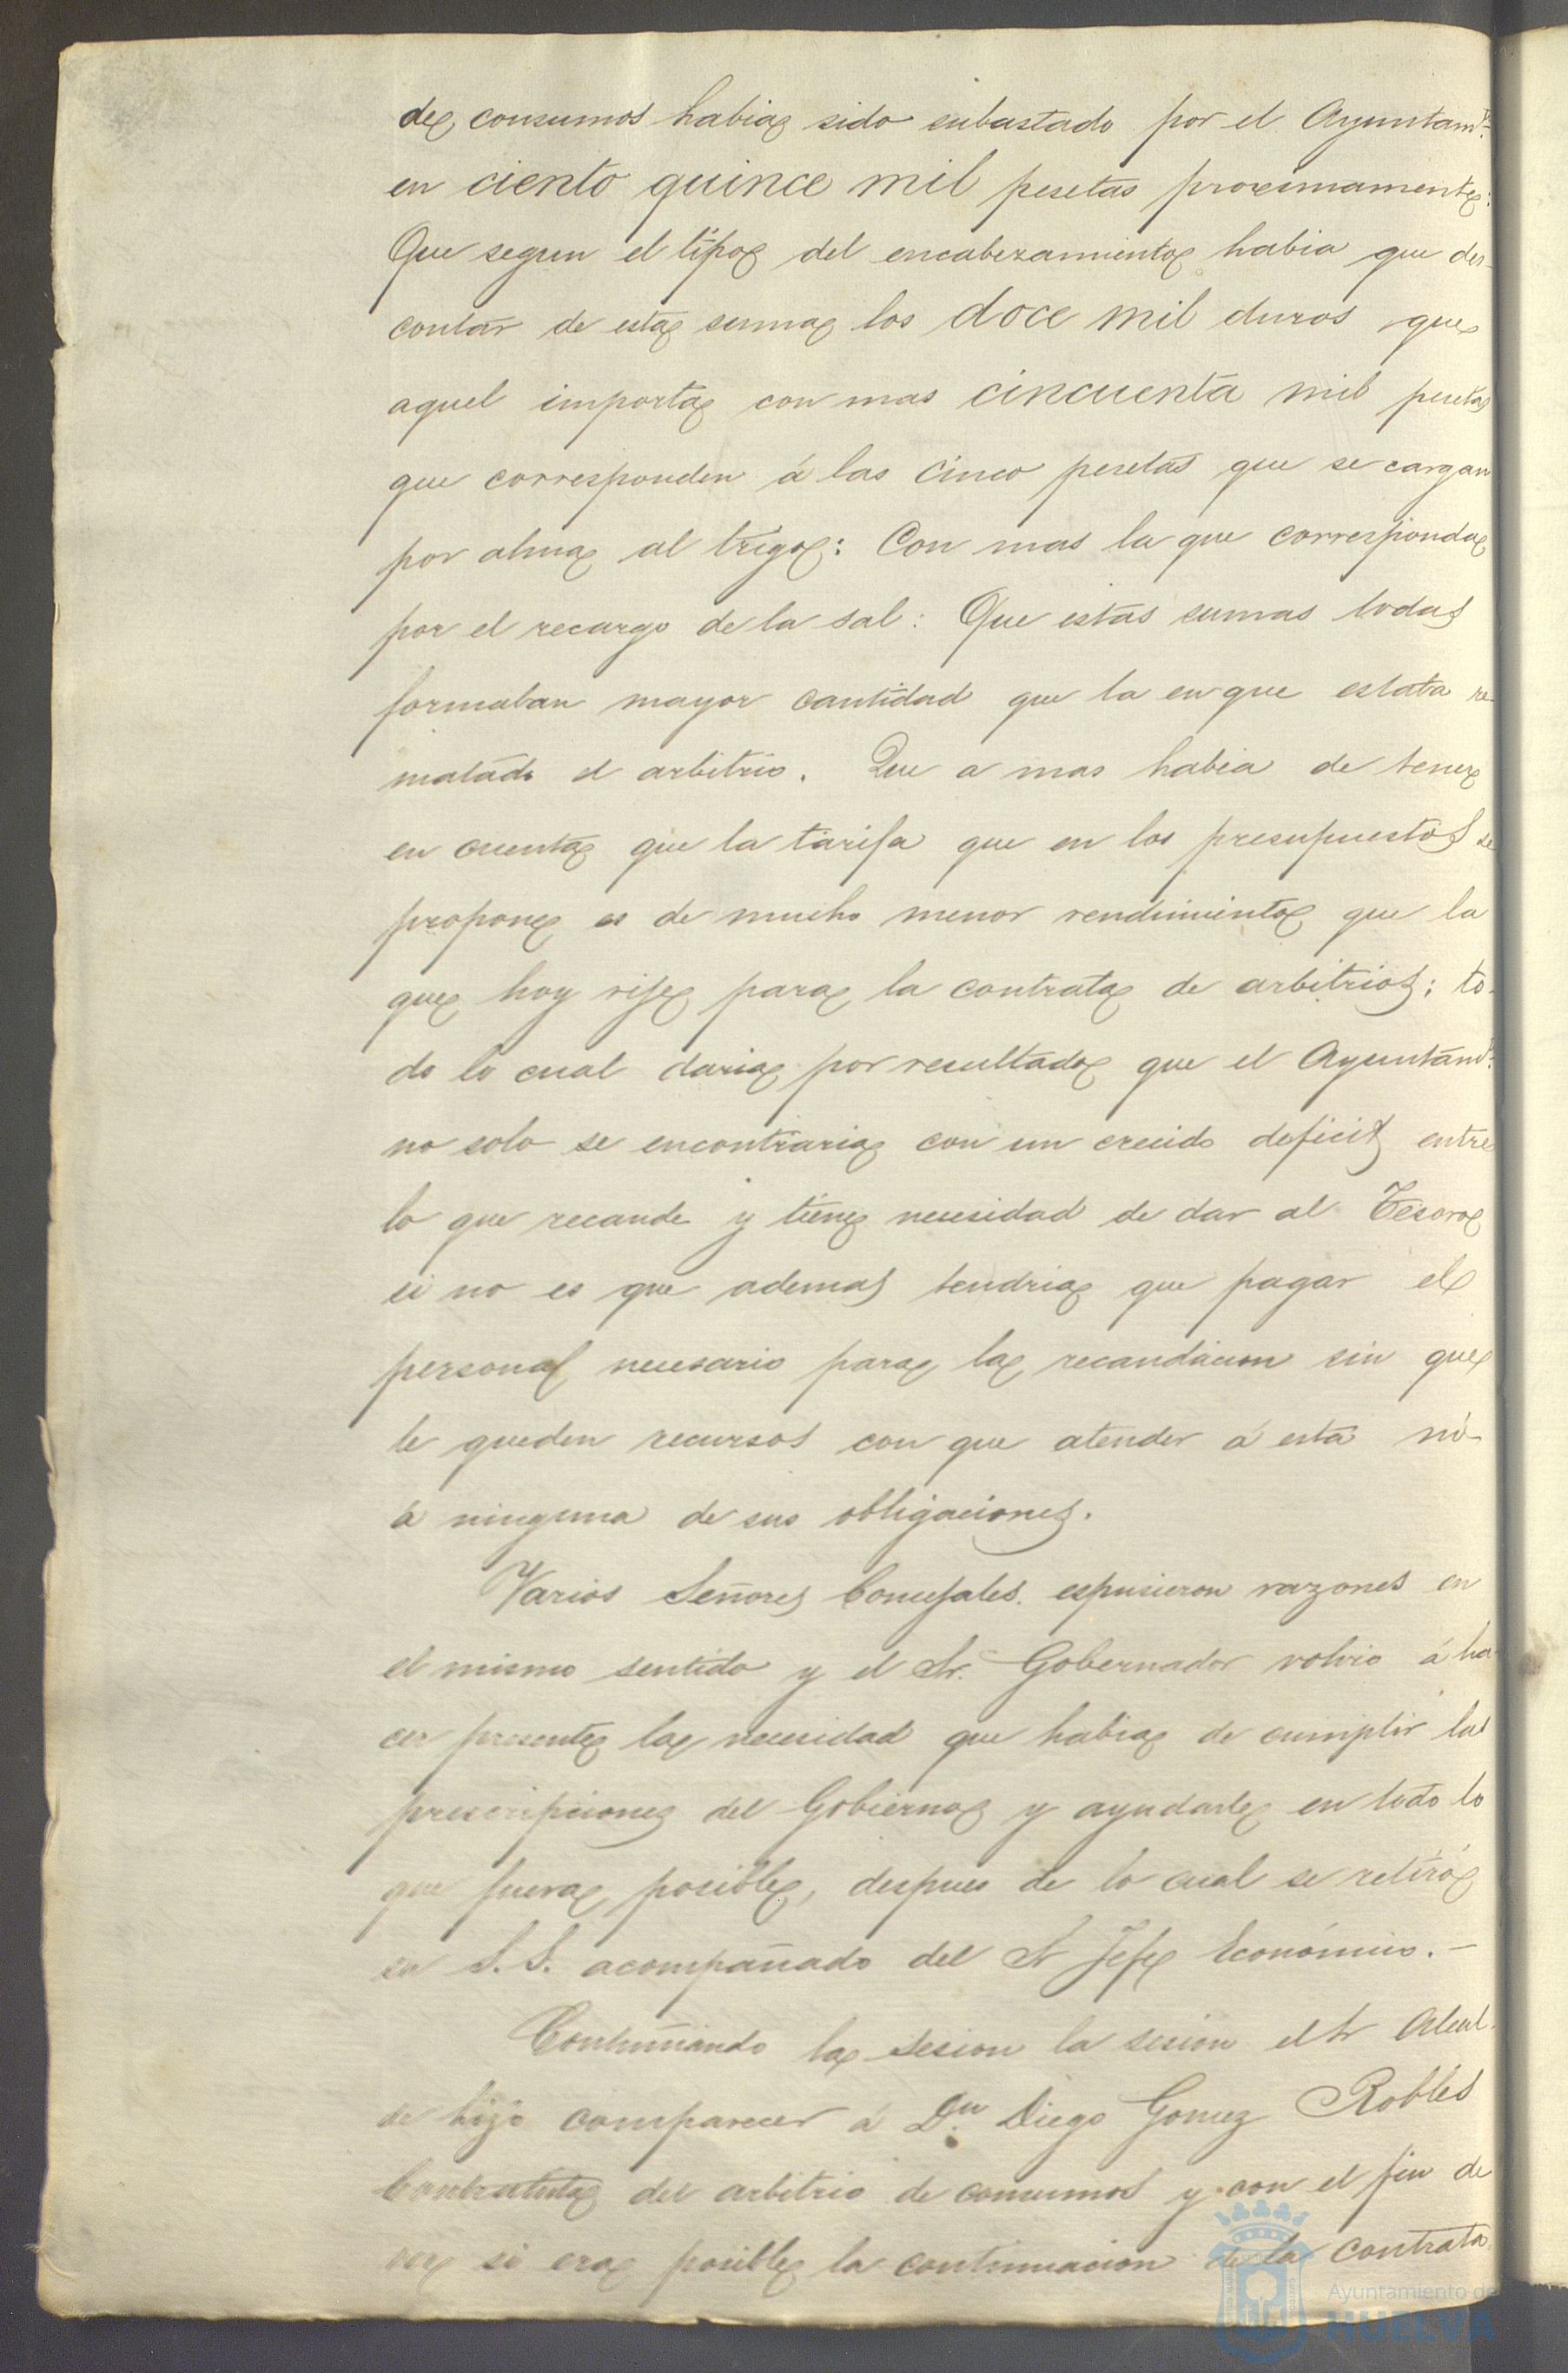 de consumos habia sido subastado por el Ayuntamto.
en ciento quince mil pesetas procsimamente:
Que segun el tipo del encabezamiento habia que des-
contar de esta suma los doce mil duros que
aquel importa con mas cincuenta mil pesetas
que corresponden á las cinco pesetas que se cargan
por alma al trigo: Con mas la que corresponda
por el recargo de la sal: Que estas sumas todas
formaban mayor cantidad que la en que estaba re-
matado el arbitrio. Que a mas habia de tener
en cuenta que la tarifa que en los presupuestos se
propone es de mucho menor rendimiento que la
que hoy rije para la contrata de arbitrios; to-
do lo cual daria por resultado que el Ayuntamto.
no solo se encontraria con un crecido deficit entre
lo que recaude y tiene necesidad de dar al Tesoro
si no es que ademas tendria que pagar el
personal necesario para la recaudacion sin que
le queden recursos con que atender á esta ni-
á ninguna de sus obligaciones.
Varios Señores Concejales espusieron razones en
el mismo sentido y el Sr. Gobernador volvio á ha-
cer presente la necesidad que habia de cumplir las
prescripciones del Gobierno y ayudarle en todo lo
que fuera posible, despues de lo cual se retiró
su S.S. acompañado del Sr Jefe Económico.-
Continuando la sesion la sesion el Sr Alcal-
de hizo comparecer á Dn. Diego Gomez Robles
Contratista del arbitrio de consumos y con el fin de
ver si era posible la continuacion de la contrata
Ayuntamiento de
HUELVA